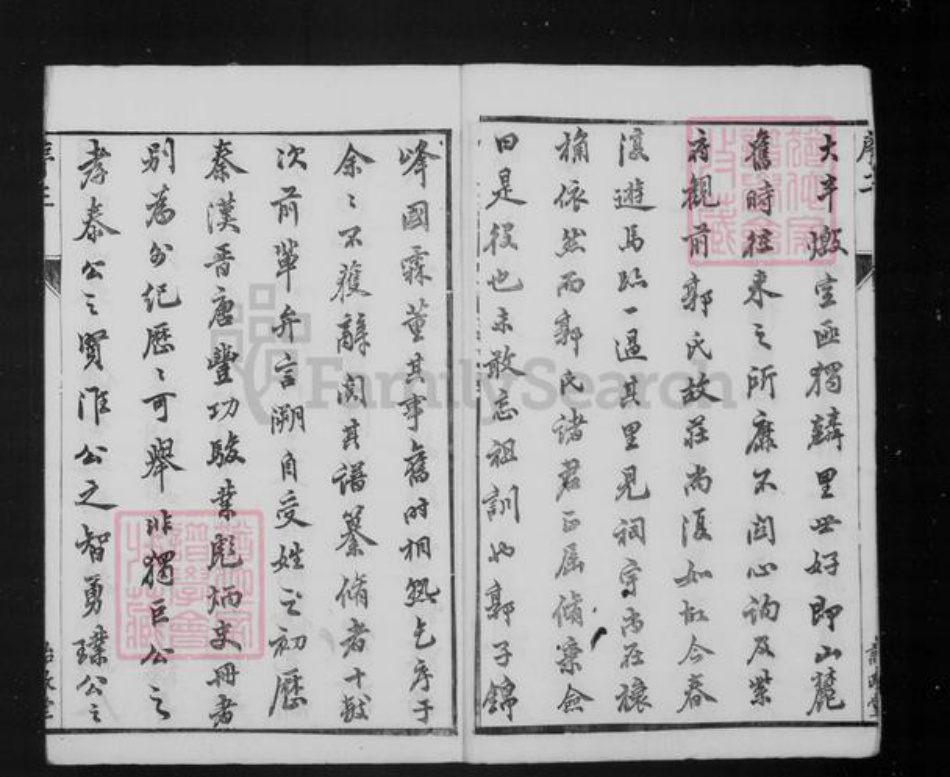 序二
大半燉室函獨麟里世好即山麓
舊時往來之所靡不関心詢及紫
府觀前郭氏故莊尚復如故今春
復遊馬跡一過其里見祠宇尚在榱
桷依然而郭氏諸君正届脩業僉
曰是役也未敢忘祖訓也郭子錦
峰國霖董其事舊時相熟乞序于
余余不獲辭閱其譜纂脩者十數
次前輩弁言溯自受姓之初歷
秦漢晋唐豐功駿業彪炳史冊者
別為外紀歷歷可舉非獨巨公之
孝泰公之賢淮公之智勇璞公之
FamilySearch